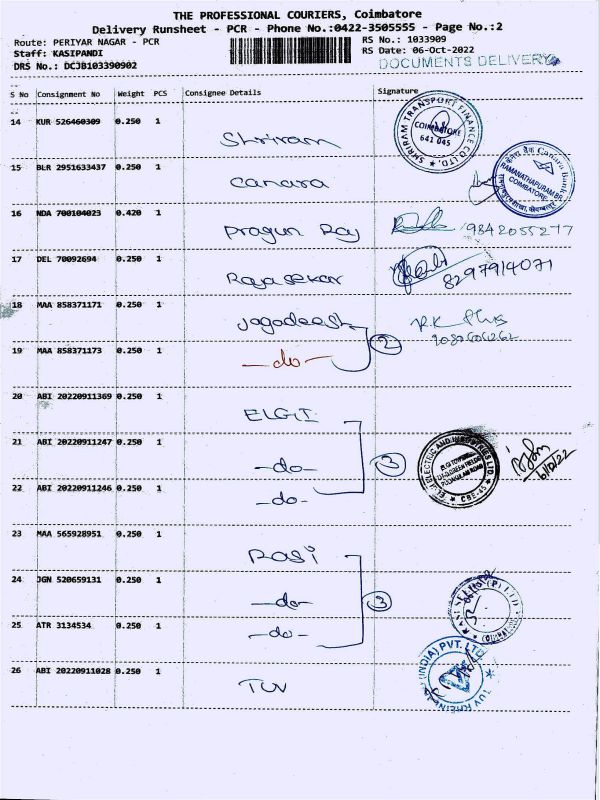 THE PROFESSIONAL COURIERS, Coimbatore
Delivery Runsheet - PCR - Phone No.:0422-3505555 - Page No.:2
Route: PERIYAR NAGAR - PCR
Staff: KASIPANDI
DRS No.: DCJB103390902
RS No.: 1033909
RS Date: 06-Oct-2022
DOCUMENTS DELIVERY
S No Consignment No Weight PCS Consignee Details Signature
14 KUR 526460309 0.250 1 Shriram
SHRIRAM TRANSPORT FINANCE CO LTD.
COIMBATORE
641 045
15 BLR 2951633437 0.250 1 Canara
Canara Bank
RAMANATHAPURAM BR
COIMBATORE
16 NDA 700104023 0.420 1 Pragun Ray 9842055277
17 DEL 70092694 0.250 1 Rajasekar 8297914071
18 MAA 858371171 0.250 1 Jagadeesh
19 MAA 858371173 0.250 1 -do- 2
20 ABI 20220911369 0.250 1 ELGI
21 ABI 20220911247 0.250 1 -do- 3
ELGI ELECTRIC AND INDUSTRIES LTD.
CBE-45
6/10/22
22 ABI 20220911246 0.250 1 -do-
23 MAA 565928951 0.250 1 Rasi
24 JGN 520659131 0.250 1 -do- 3
25 ATR 3134534 0.250 1 -do-
26 ABI 20220911028 0.250 1 TUV
(INDIA) PVT. LTD